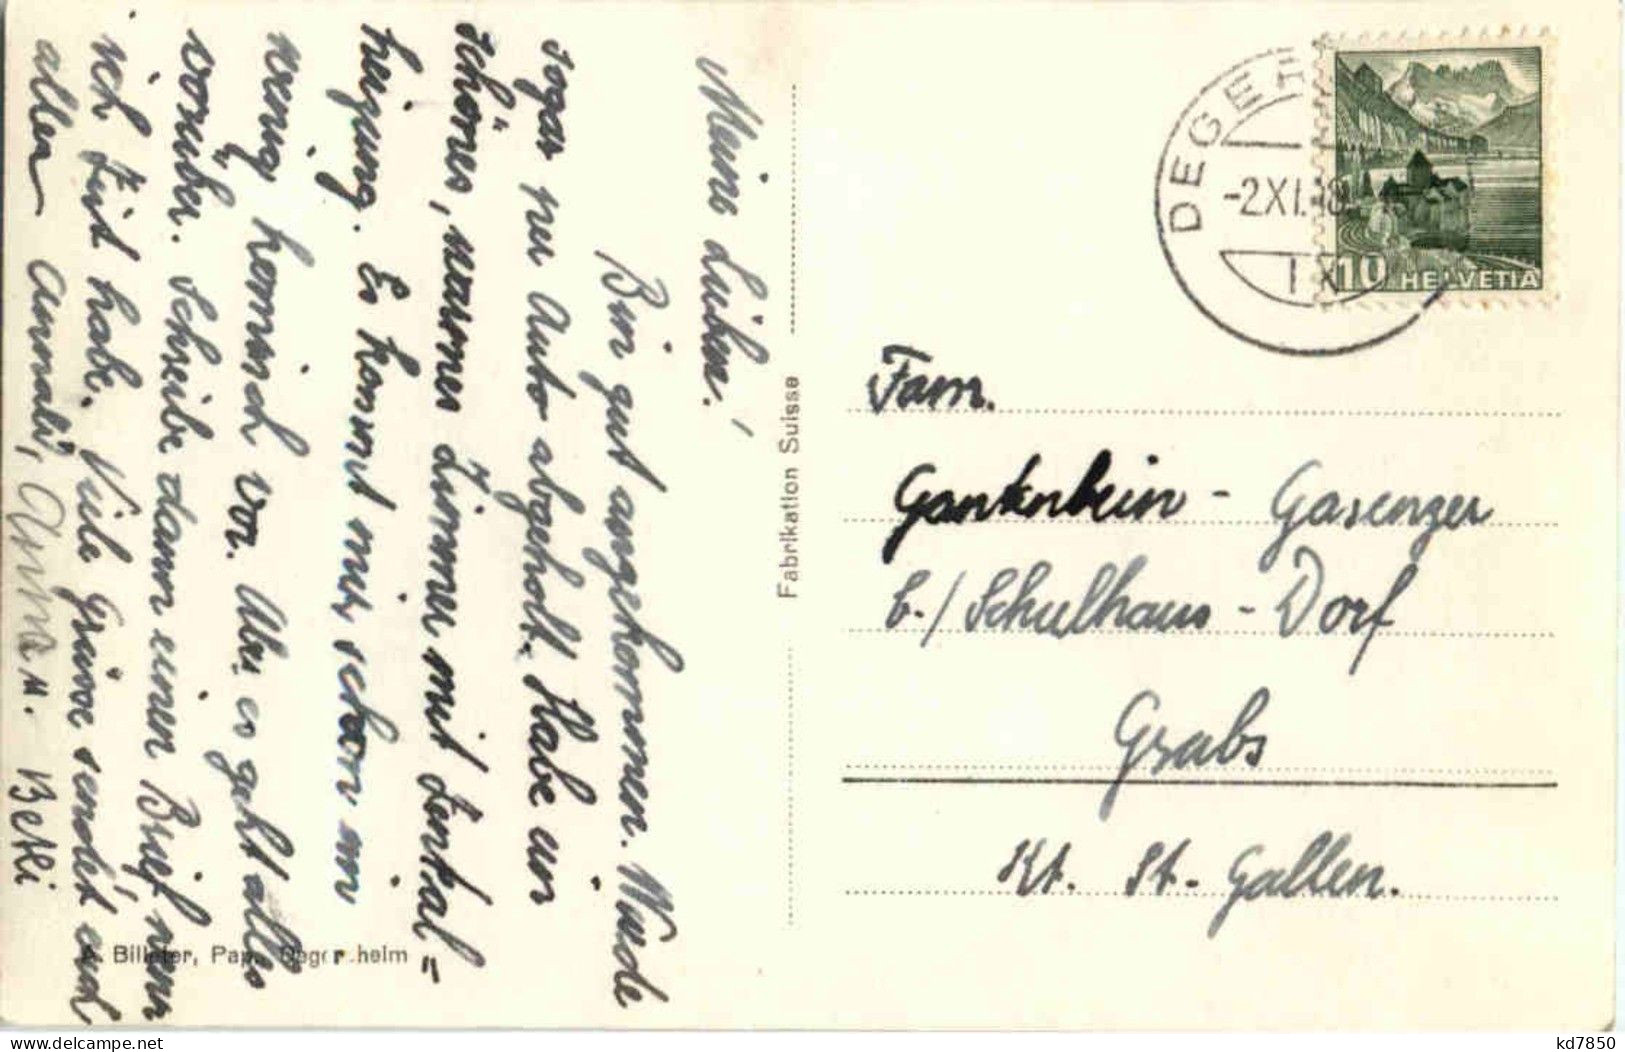 Meine Lieben!
Bin gut angekommen. Wurde
sogar per Auto abgeholt. Habe ein
schönes, warmes Zimmer mit Zentral=
heizung. Es kommt mir schon ein
wenig komisch vor. Aber es geht alles
vorüber. Schreibe dann einen Brief wenn
ich Zeit habe. Viele Grüsse sendet euch
allen Annali, Anna u. Betli
A. Billeter, Pap. Degersheim
Fabrikation Suisse
DEGER
-2.XI.
10 HELVETIA
Fam.
Gantenbein - Gasenzer
b./Schulhaus - Dorf
Grabs
Kt. St. Gallen.
kd7850